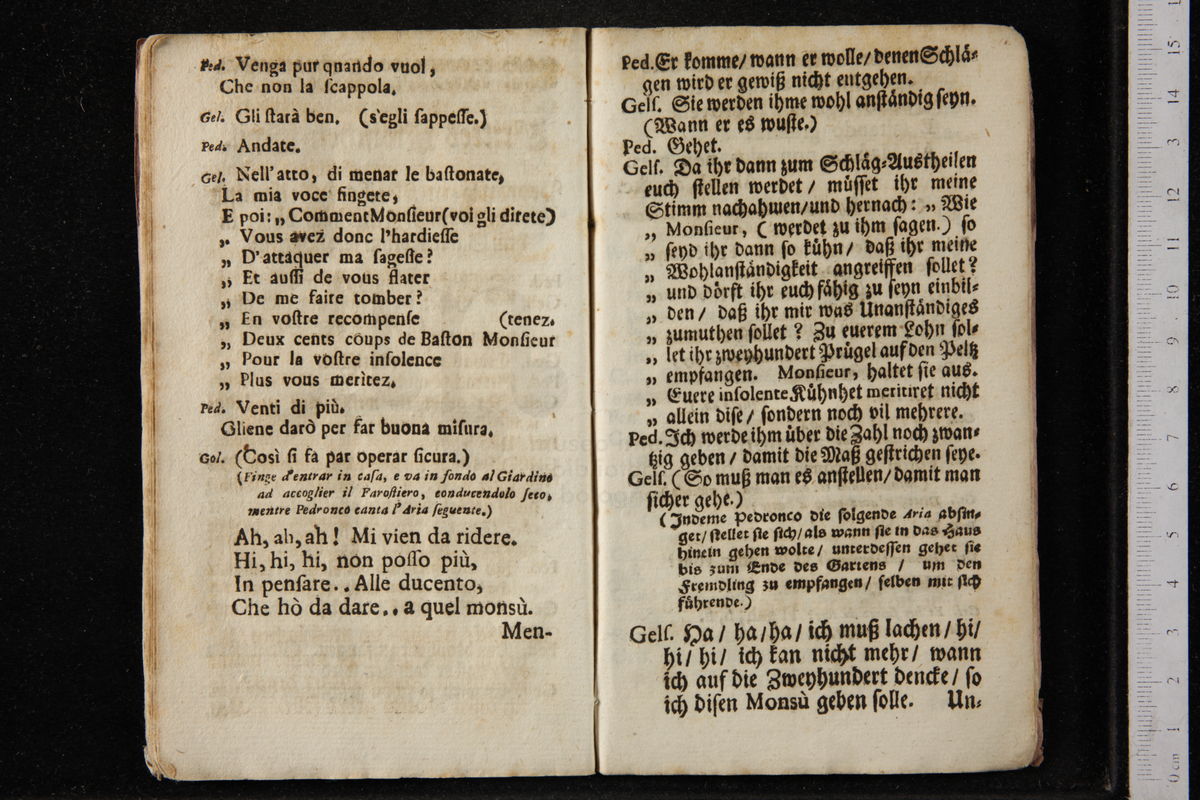 Ped. Venga pur quando vuol,
Che non la ſcappola.
Gel. Gli ſtarà ben. (s'egli ſappeſſe.)
Ped. Andate.
Gel. Nell'atto, di menar le baſtonate,
La mia voce fingete,
E poi: „ Comment Monſieur (voi gli direte)
„ Vous avez donc l'hardieſſe
„ D'attaquer ma ſageſſe?
„ Et auſſi de vous flater
„ De me faire tomber?
„ En voſtre recompenſe (tenez.
„ Deux cents coups de Baſton Monſieur
„ Pour la voſtre inſolence
„ Plus vous meritez.
Ped. Venti di più.
Gliene darò per far buona miſura.
Gol. (Così ſi fà par operar ſicura.)
(Finge d'entrar in caſa, e va in fondo al Giardino
ad accoglier il Faroſtiero, conducendolo ſeco,
mentre Pedronco canta l'Aria ſeguente.)
Ah, ah, ah! Mi vien da ridere.
Hi, hi, hi, non poſſo più,
In penſare.. Alle ducento,
Che hò da dare.. a quel monsù.
Men-
Ped. Er komme/ wann er wolle/ denen Schlä-
gen wird er gewiß nicht entgehen.
Gelſ. Sie werden ihme wohl anſtändig ſeyn.
(Wann er es wuſte.)
Ped. Gehet.
Gelſ. Da ihr dann zum Schläg-Austheilen
euch ſtellen werdet/ müſſet ihr meine
Stimm nachahmen/ und hernach: „ Wie
„ Monſieur, (werdet zu ihm ſagen.) ſo
„ ſeyd ihr dann ſo kühn/ daß ihr meine
„ Wohlanſtändigkeit angreiffen ſollet?
„ und dörft ihr euch fähig zu ſeyn einbil-
„ den/ daß ihr mir was Unanſtändiges
„ zumuthen ſollet? Zu euerem Lohn ſol-
„ let ihr zweyhundert Prügel auf den Peltz
„ empfangen. Monſieur, haltet ſie aus.
„ Euere inſolente Kühnhet meritiret nicht
„ allein diſe/ ſondern noch vil mehrere.
Ped. Ich werde ihm über die Zahl noch zwan-
tzig geben/ damit die Maß geſtrichen ſeye.
Gelſ. (So muß man es anſtellen/ damit man
ſicher gehe.)
(Indeme Pedronco die folgende Aria abſin-
get/ ſtellet ſie ſich/ als wann ſie in das Haus
hinein gehen wolte/ unterdeſſen gehet ſie
bis zum Ende des Gartens/ um den
Fremdling zu empfangen/ ſelben mit ſich
führende.)
Gelſ. Ha/ ha/ ha/ ich muß lachen/ hi/
hi/ hi/ ich kan nicht mehr/ wann
ich auf die Zweyhundert dencke/ ſo
ich diſen Monsù geben ſolle. Un-
0 cm 1 2 3 4 5 6 7 8 9 10 11 12 3 14 15